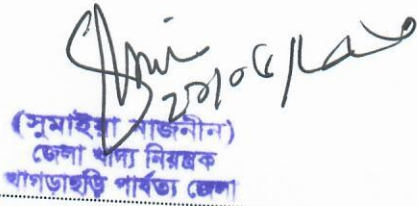 (সুমাইয়া নাজনীন)
জেলা খাদ্য নিয়ন্ত্রক
খাগড়াছড়ি পার্বত্য জেলা